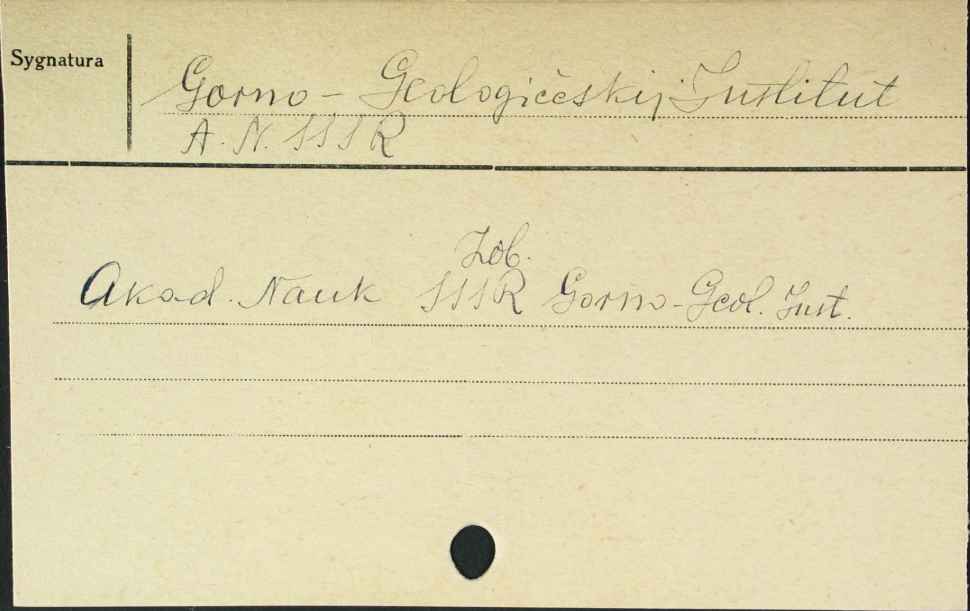 Sygnatura
Gorno-Geologičeskij Institut
A. N. SSSR
Zob.
Akad. Nauk SSSR Gorno-Geol. Inst.